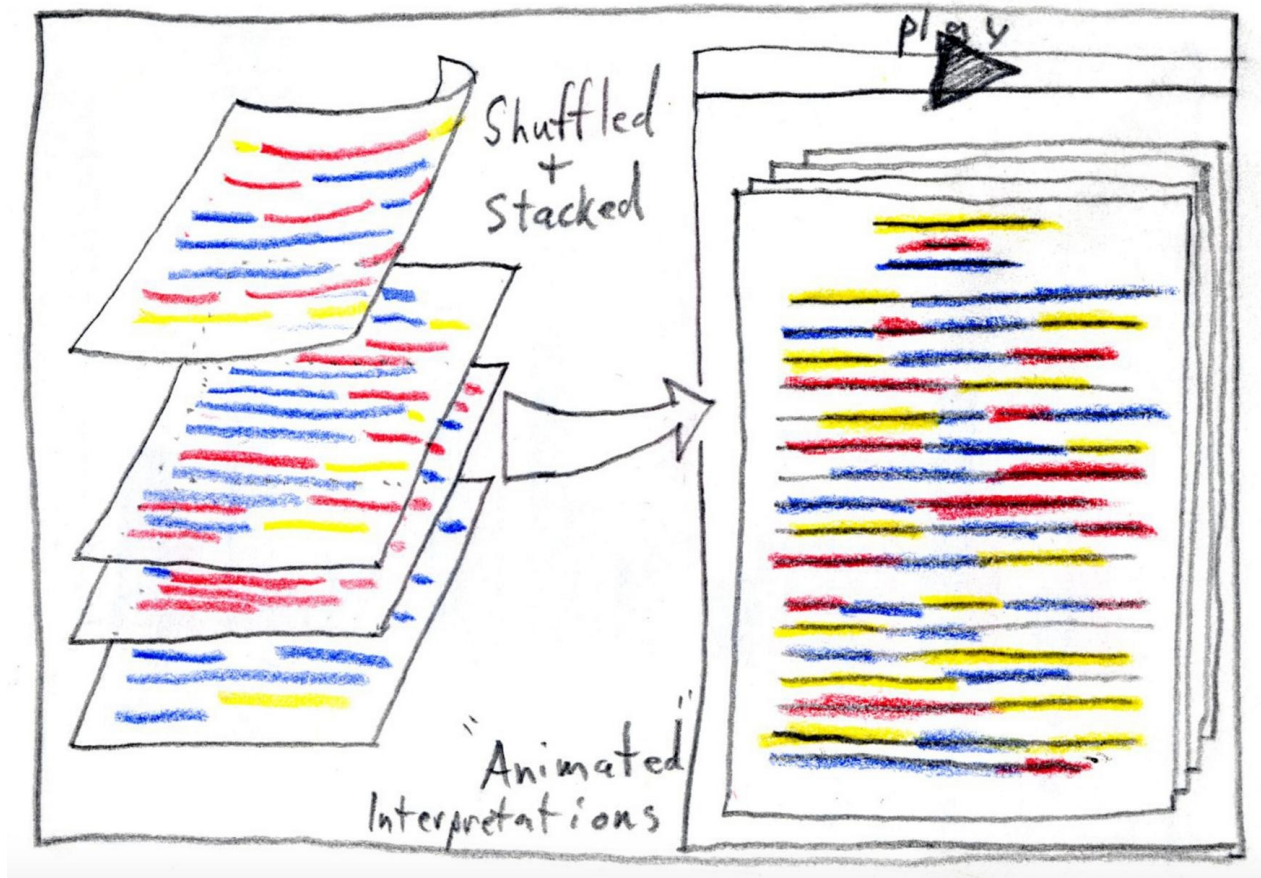 Shuffled
+
Stacked
play
"Animated"
Interpretations